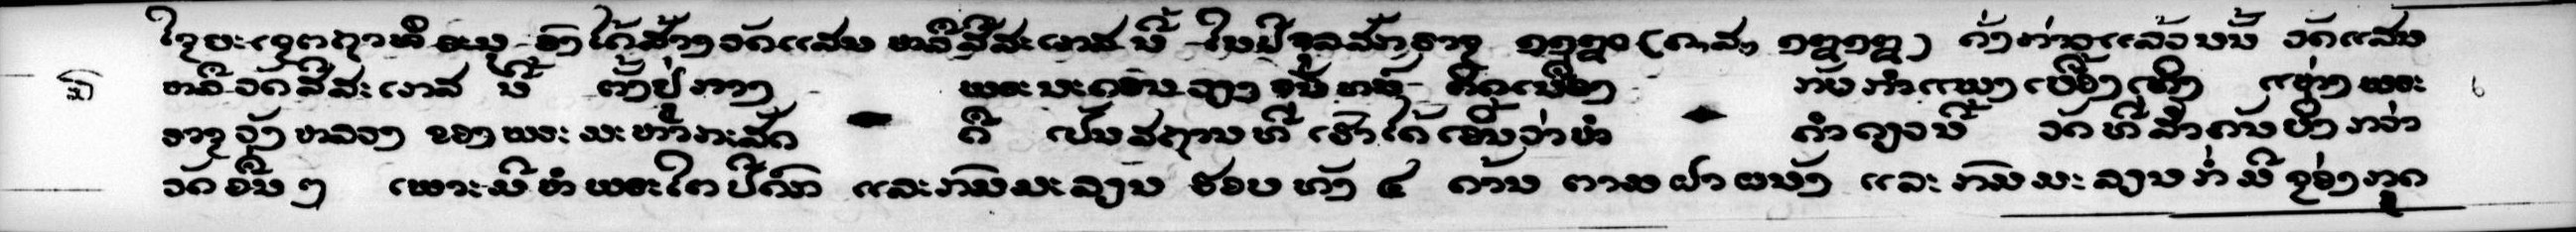 ຈຶ່ງໄດ້ສ້າງວັດແສນ ຫລືສີສະເກສ ນີ້ ໃນປີຈຸລສັງກາຊ ໑໑໘໐ (ຄ,ສ, ໑໘໑໘) ດັ່ງກ່າວແລ້ວນັ້ນ ວັດແສນ
ຫລືວັດສີສະເກສ ນີ້ ຕັ້ງຢູ່ກາງ ພຣະນະຄອນວຽງຈັນທນ໌ ກັບກຳແພງເບື້ອງ ແຫ່ງພຣະ
ຣາຊວັງຫລວງ ຂອງພຣະມະຫາກະສັດ ຄື ເປັນສຖານທີ່ເຮົາໄດ້ເຫັນວ່າຫໍ ຄຳດຽວນີ້ ວັດທີ່ສຳຄັນຍິ່ງກວ່າ
ວັດອື່ນໆ ເພາະມີຫໍພຣະໄຕປີດົກ ແລະກົມມະລຽນ ຮອບທັງ ໔ ດ້ານ ຕາມຝາຜນັງ ແລະກົມມະລຽນກໍ່ມີຊ່ອງກຸດ